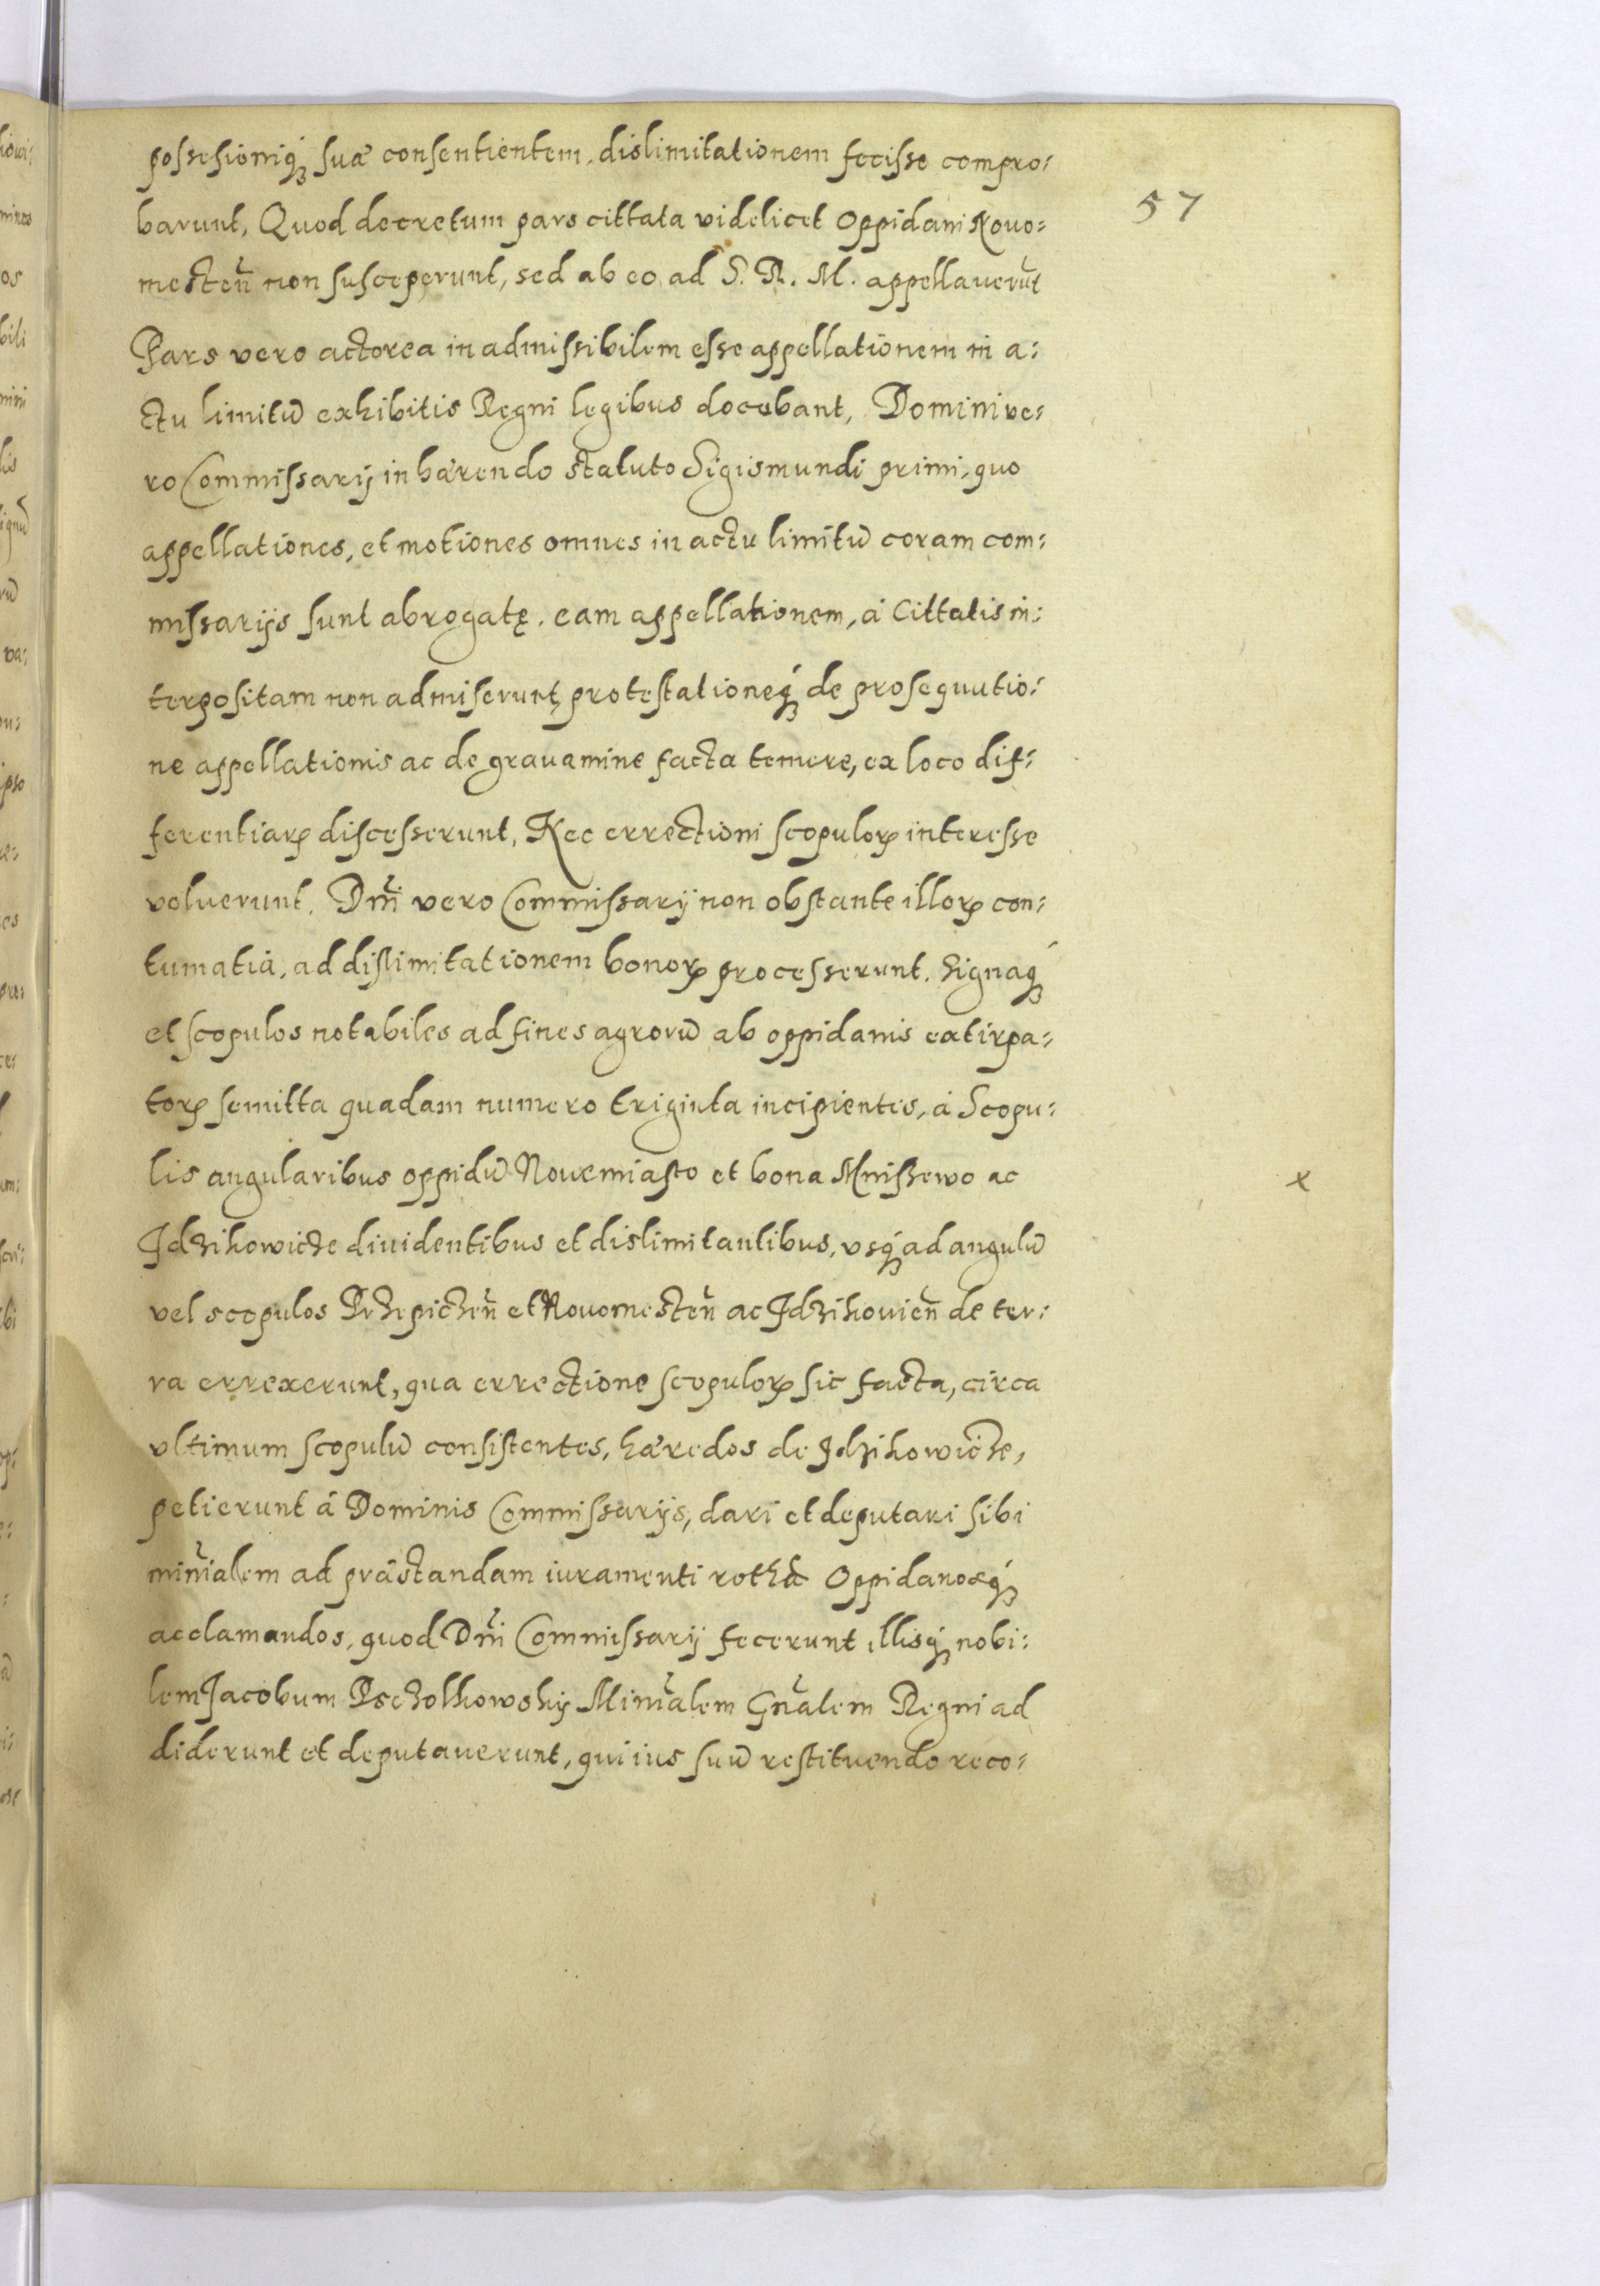 possesioniq́ȝ suæ consentientem, dislimitationem fecisse compro:
57
barunt, Quod decretum pars cittata videlicet Oppidani Novo:
mesteñ non susceperunt, sed ab eo ad S. R. M. appellaverūt
Pars vero actorea in admissibilem esse appellationem in a:
ctu limitū exhibitis Regni legibus docebant, Domini ve:
ro Commissarij in hærendo statuto Sigismundi primi, quo
appellationes, et motiones omnes in actu limitū coram com:
missarijs sunt abrogatę, eam appellationem, á Cittatis in:
terpositam non admiserunt, protestationeq́ȝ de prosequutio:
ne appellationis ac de gravamine facta temere, ex loco dif:
ferentiarꝝ discesserunt, Nec errectioni scopulorꝝ interesse
voluerunt. Dñi vero Commissarij non obstante illorꝝ con:
tumatiâ, ad dislimitationem bonorꝝ processerunt. Signaq́ȝ
et scopulos notabiles ad fines agrorū ab oppidanis extirpa:
torꝝ semitta quadam numero triginta incipientes, á Scopu:
lis angularibus oppidū Novemiasto et bona Mniszewo ac
x
Idzikowicze dividentibus et dislimitantibus, vsq́ȝ ad angulū
vel scopulos Przepiczeñ et Novomesteñ ac Idzikovieñ de ter:
ra errexerunt, qua errectione scopulorꝝ sic facta, circa
vltimum scopulū consistentes, hæredes de Idzikowicze,
petierunt á Dominis Commissarijs, dari et deputari sibi
miñialem ad præstandam iuramenti rothā Oppidanosq́ȝ
acclamandos, quod Dñi Commissarij fecerunt illisq́ȝ nobi:
lem Jacobum Psczolkowskij Miniãlem Gñalem Regni ad
diderunt et deputaverunt, qui ius suū restituendo reco: